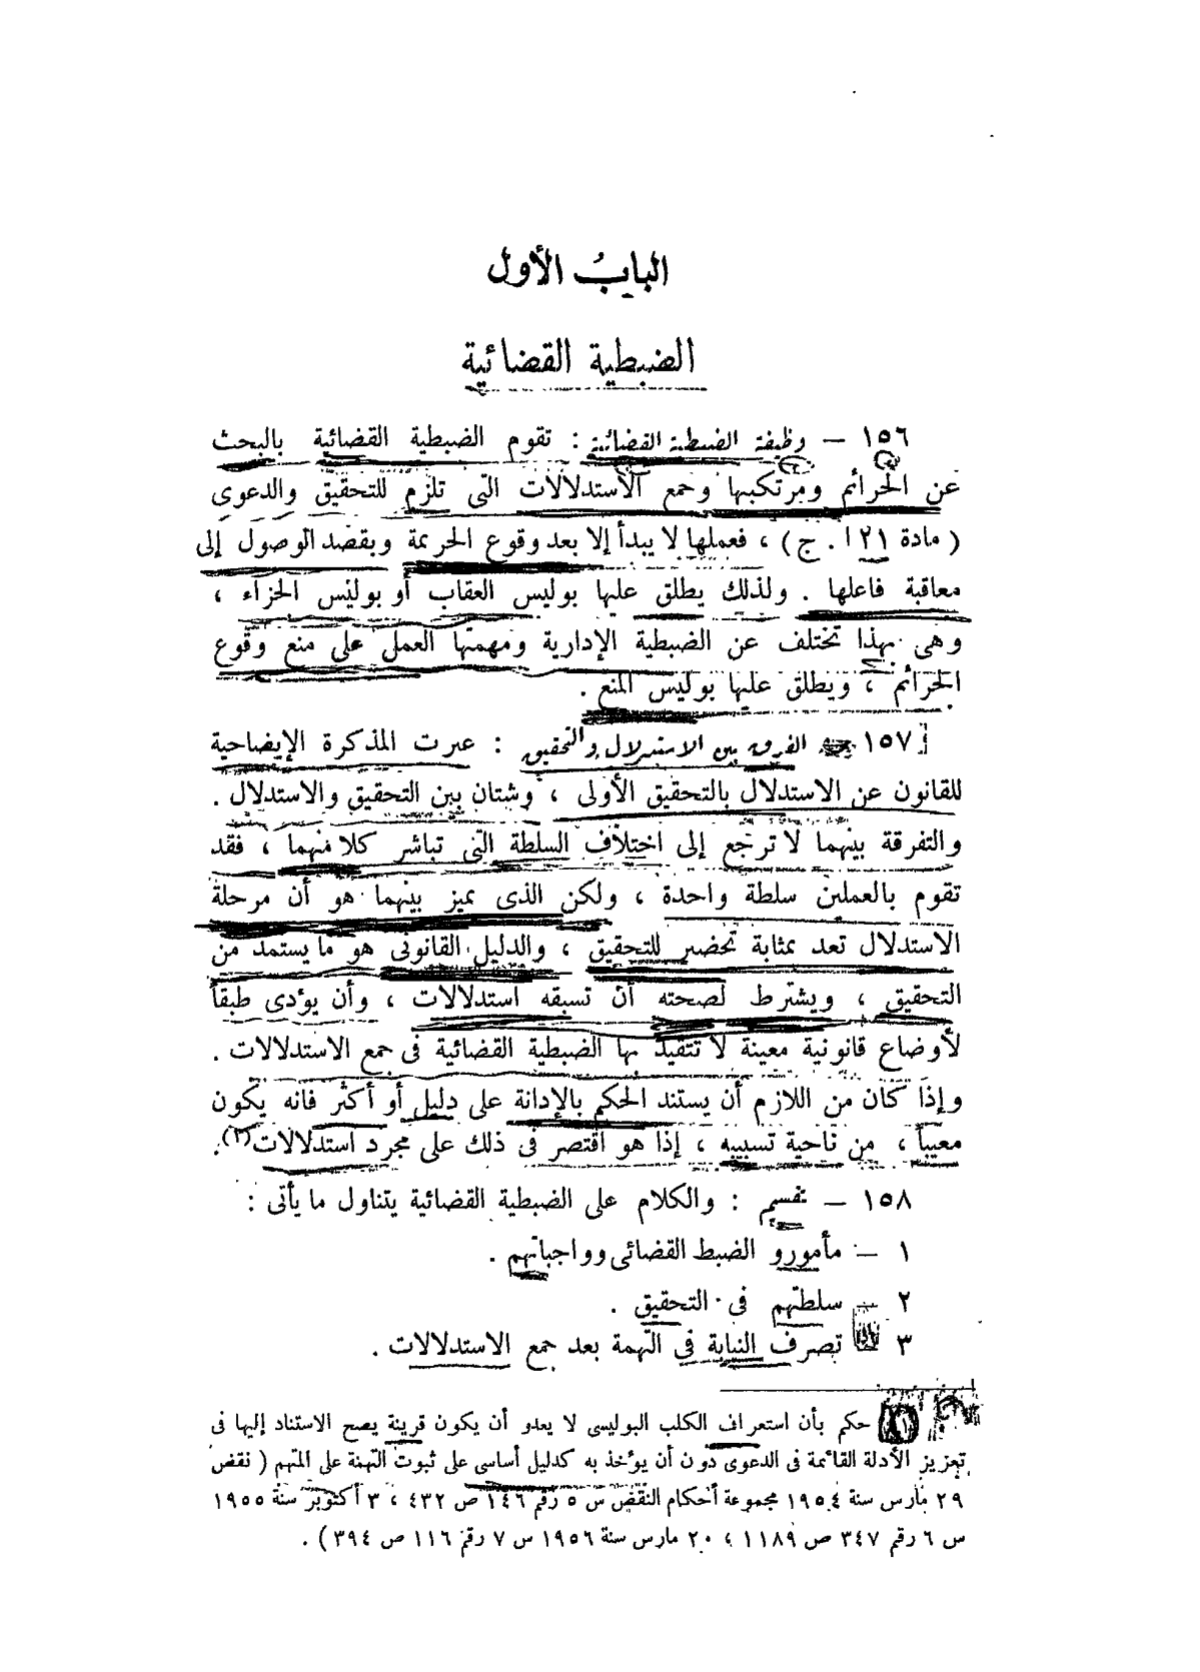 الباب الأول
الضبطية القضائية
١٥٦ — وظيفة الضبطية القضائية : تقوم الضبطية القضائية بالبحث
عن الجرائم ومرتكبيها وجمع الاستدلالات التى تلزم للتحقيق والدعوى
( مادة ٢١ ا . ج ) ، فعملها لا يبدأ إلا بعد وقوع الجريمة وبقصد الوصول إلى
معاقبة فاعلها . ولذلك يطلق عليها بوليس العقاب أو بوليس الجزاء ،
وهى بهذا تختلف عن الضبطية الإدارية ومهمتها العمل على منع وقوع
الجرائم ، ويطلق عليها بوليس المنع .
١٥٧ — الفرق بين الاستدلال والتحقيق : عبرت المذكرة الإيضاحية
للقانون عن الاستدلال بالتحقيق الأولى ، وشتان بين التحقيق والاستدلال .
والتفرقة بينهما لا ترجع إلى اختلاف السلطة التى تباشر كلا منهما ، فقد
تقوم بالعملين سلطة واحدة ، ولكن الذى يميز بينهما هو أن مرحلة
الاستدلال تعد بمثابة تحضير للتحقيق ، والدليل القانونى هو ما يستمد من
التحقيق ، ويشترط لصحته أن تسبقه استدلالات ، وأن يؤدى طبقاً
لأوضاع قانونية معينة لا تتقيد بها الضبطية القضائية فى جمع الاستدلالات .
وإذا كان من اللازم أن يستند الحكم بالإدانة على دليل أو أكثر فانه يكون
معيباً ، من ناحية تسبيبه ، إذا هو اقتصر فى ذلك على مجرد استدلالات(٢).
١٥٨ — تقسيم : والكلام على الضبطية القضائية يتناول ما يأتى :
١ — مأمورو الضبط القضائى وواجباتهم .
٢ — سلطتهم فى التحقيق .
٣ تصرف النيابة فى التهمة بعد جمع الاستدلالات .
حكم بأن استعراف الكلب البوليسى لا يعدو أن يكون قرينة يصح الاستناد إليها فى
تعزيز الأدلة القائمة فى الدعوى دون أن يؤخذ به كدليل أساسى على ثبوت التهمة على المتهم ( نقض
٢٩ مارس سنة ١٩٥٤ مجموعة أحكام النقض س ٥ رقم ١٤٦ ص ٤٣٢ ، ٣ أكتوبر سنة ١٩٥٥
س ٦ رقم ٣٤٧ ص ١١٨٩ ، ٢٠ مارس سنة ١٩٥٦ س ٧ رقم ١١٦ ص ٣٩٤ ) .